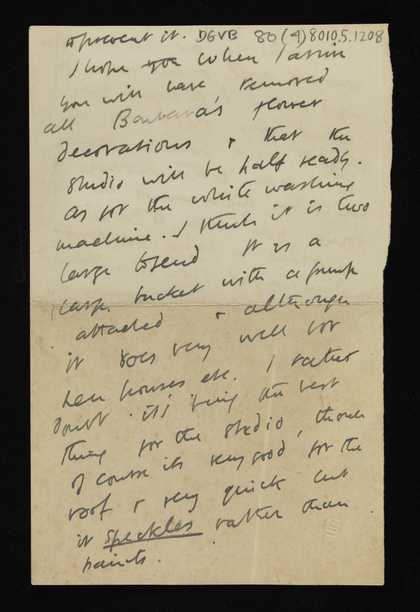 to prevent it. DGVB 80(4)8010.5.1208
I hope you when I arrive
you will have removed
all Barbara's flower
decorations & that the
studio will be half ready.
as for the white washing
machine. I think it is two
large to send It is a
large bucket with a pump
attached & although
it does very well for
hen houses etc. I rather
doubt its being the best
thing for the studio, though
of course its very good for the
roof & very quick but
it speckles rather than
paints.